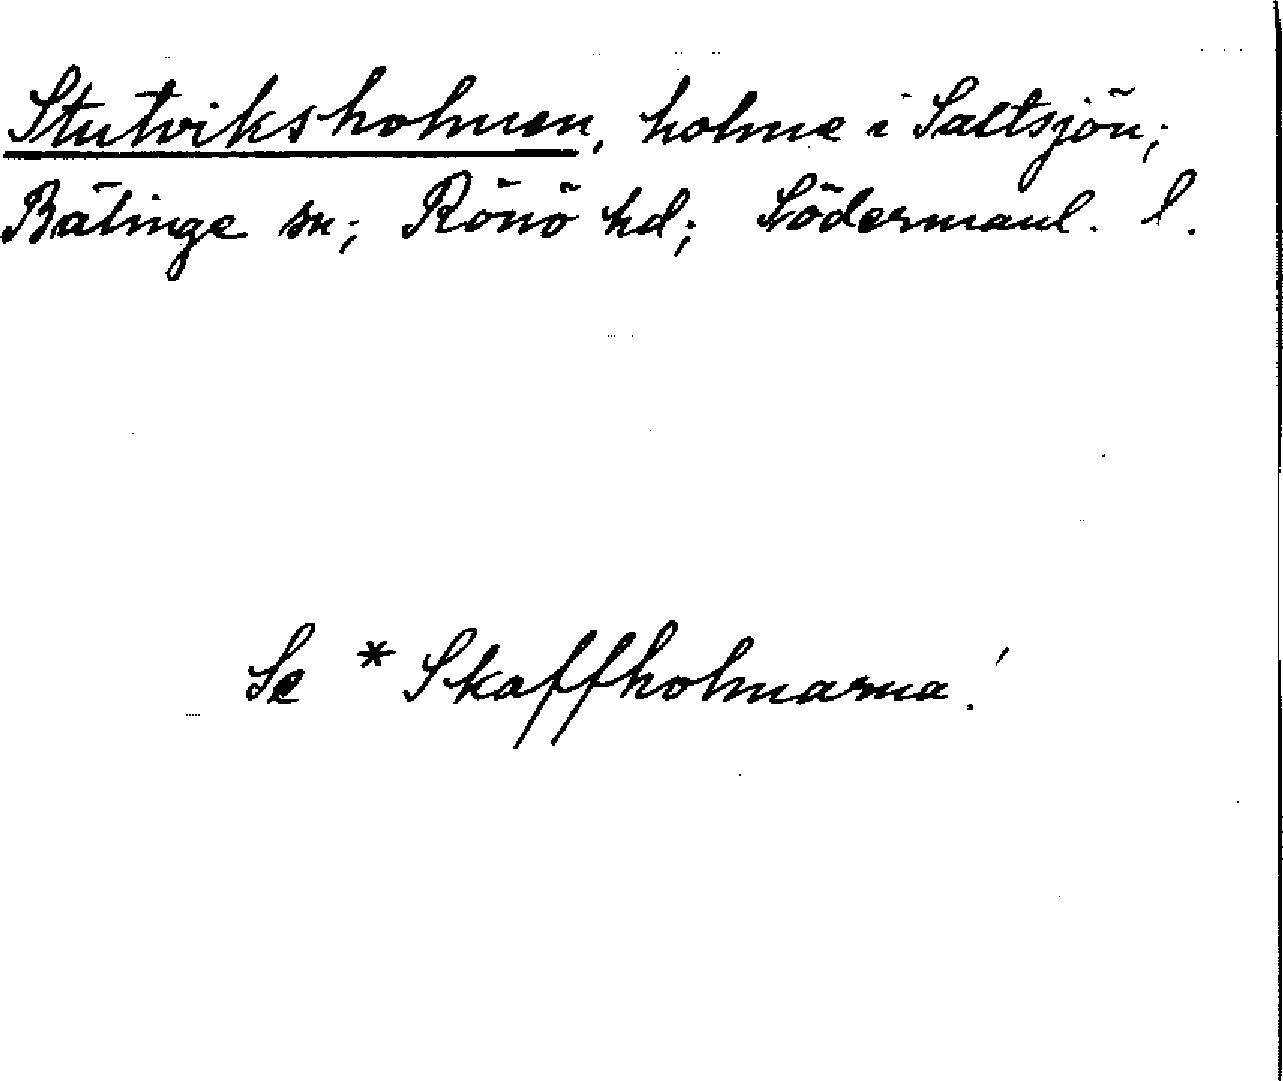 Stutviksholmen, holme i Saltsjön;
Bälinge sn; Rönö hd; Södermanl. l.
Se *Skaffholmarna!